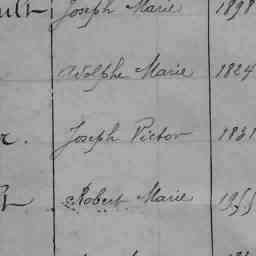 Joseph Marie 1898
Adolphe Marie 1824
Joseph Victor 1831
Robert Marie